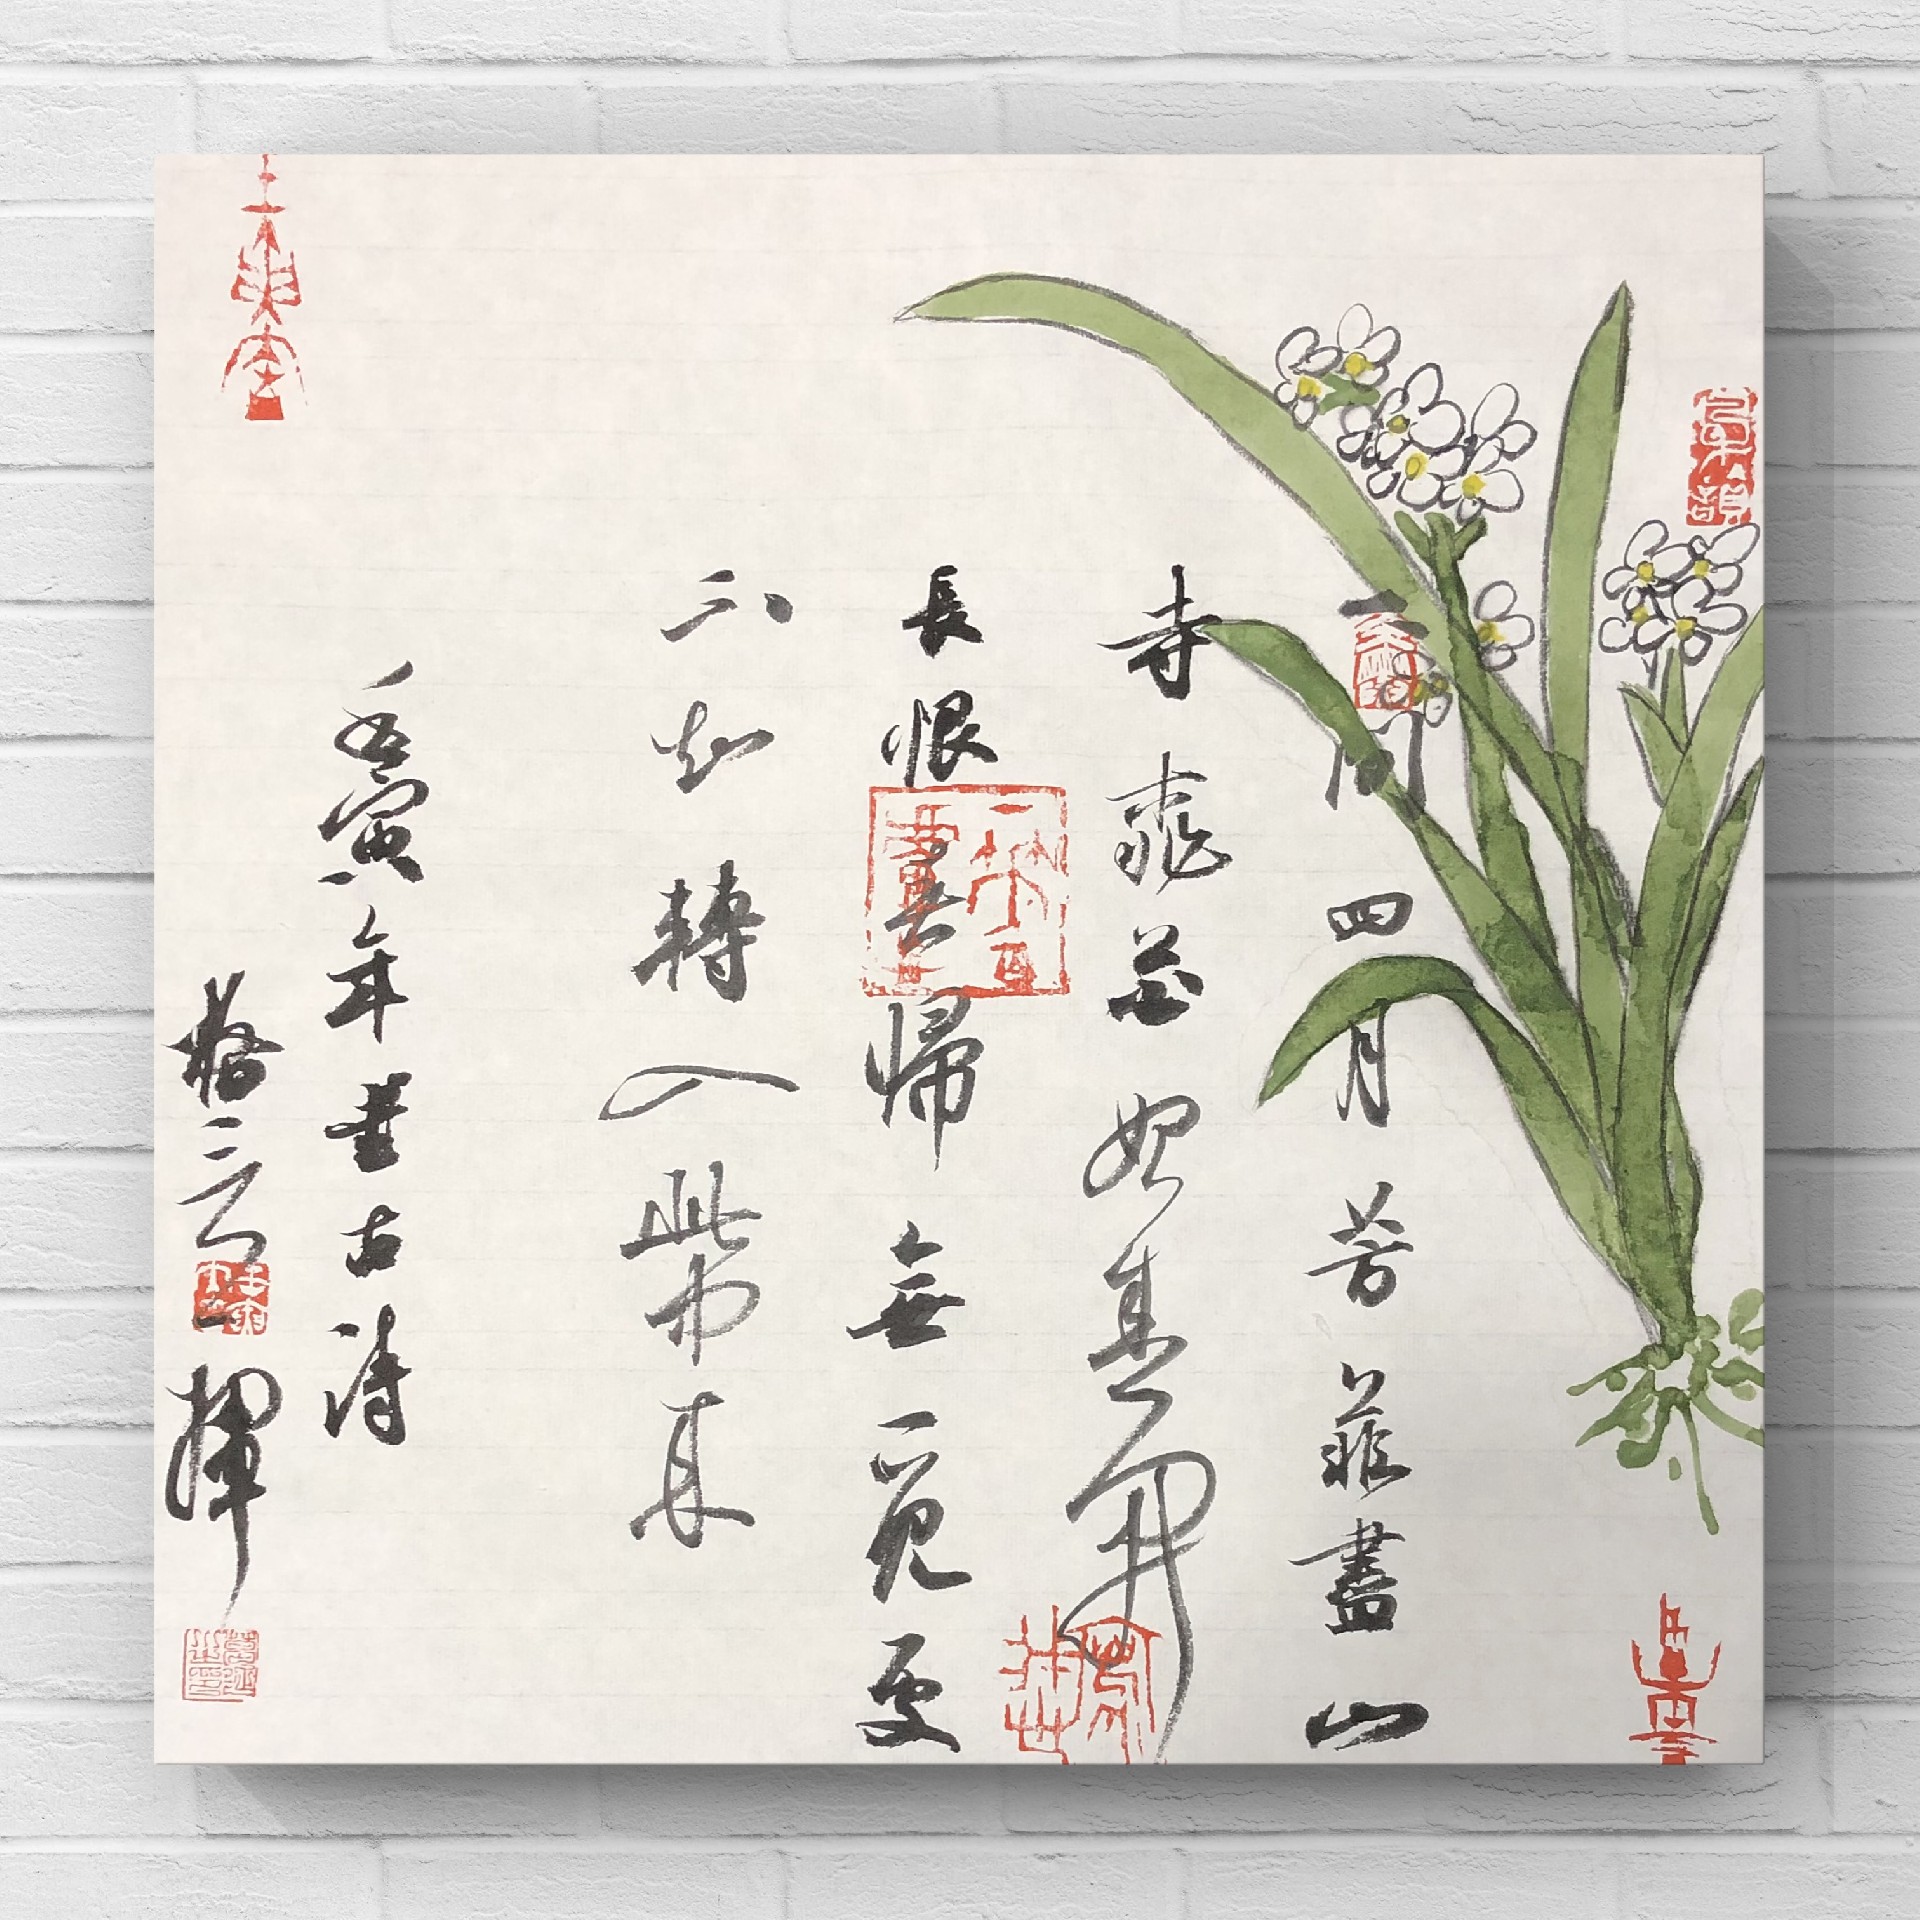 人間四月芳菲盡山
寺桃花始盛開
長恨春歸無覓處
不知轉入此中來
壬寅年書古詩
揮